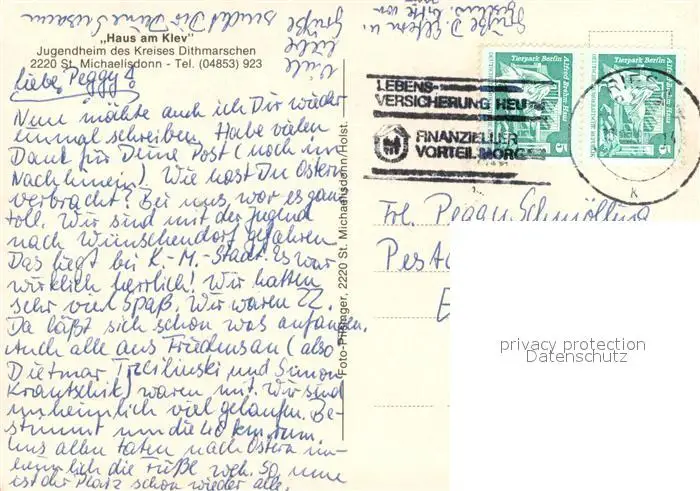 „Haus am Klev"
Jugendheim des Kreises Dithmarschen
2220 St. Michaelisdonn - Tel. (04853) 923
Liebe Peggy!
Nun möchte auch ich Dir wieder
einmal schreiben. Habe vielen
Dank für Deine Post (noch im
Nachhinein). Wie hast Du Ostern
verbracht? Bei uns war es ganz
toll. Wir sind mit der Jugend
nach Wünschendorf gefahren.
Das liegt bei K.-M.-Stadt. Es war
wirklich herrlich! Wir hatten
sehr viel Spaß. Wir waren 22.
Da läßt sich schon was anfangen.
Auch alle aus Friedensau (also
Dietmar und Simon
) waren mit. Wir sind
unheimlich viel gelaufen. Be-
stimmt um die 40 km rum.
Uns allen taten nach Ostern un-
heimlich die Füße weh. So, nun
ist der Platz schon wieder alle.
Viele
liebe
Grüße
sendet Dir Deine
Grüße D. Eltern u.
bitte von
Foto-Pflsinger, 2220 St. Michaelisdonn/Holst.
Tierpark Berlin
Alfred-Brehm-Haus
5
Tierpark Berlin
Alfred-Brehm-Haus
5
LEBENS-
VERSICHERUNG HEUTE
FINANZIELLER
VORTEIL MORGEN
K
Frl. Peggy Schmölling
Pest
E
privacy protection
Datenschutz